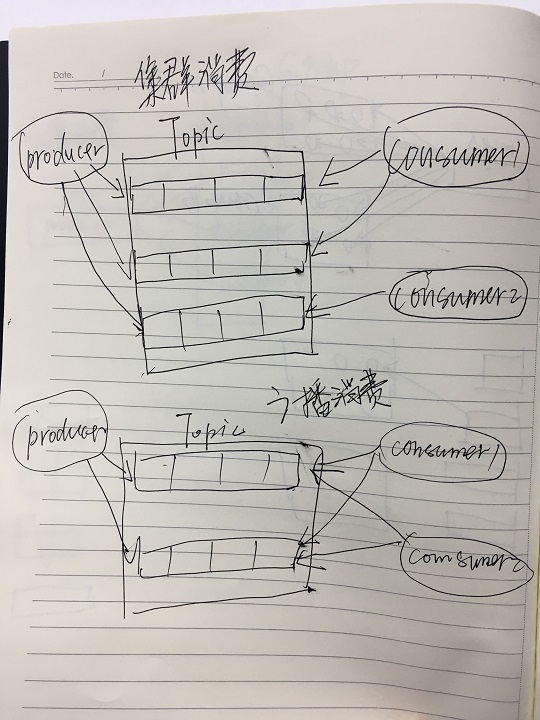 Date. /
集群消费
Topic
producer
consumer1
consumer2
广播消费
Topic
producer
consumer1
comsumer2